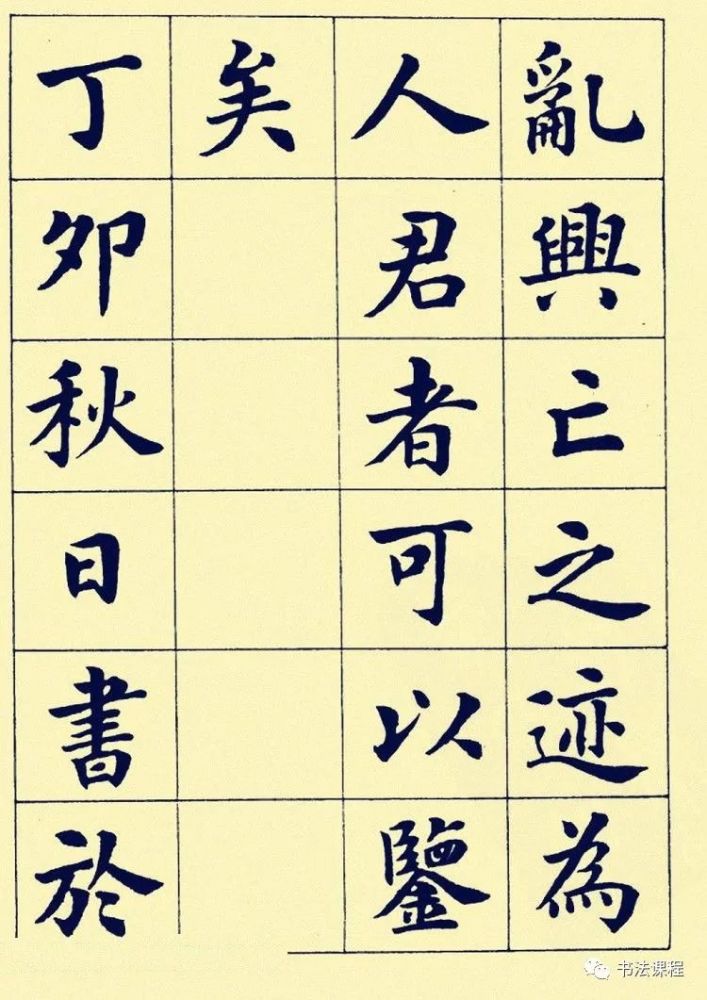 亂興亡之迹為
人君者可以鑒
矣
丁卯秋日書於
书法课程